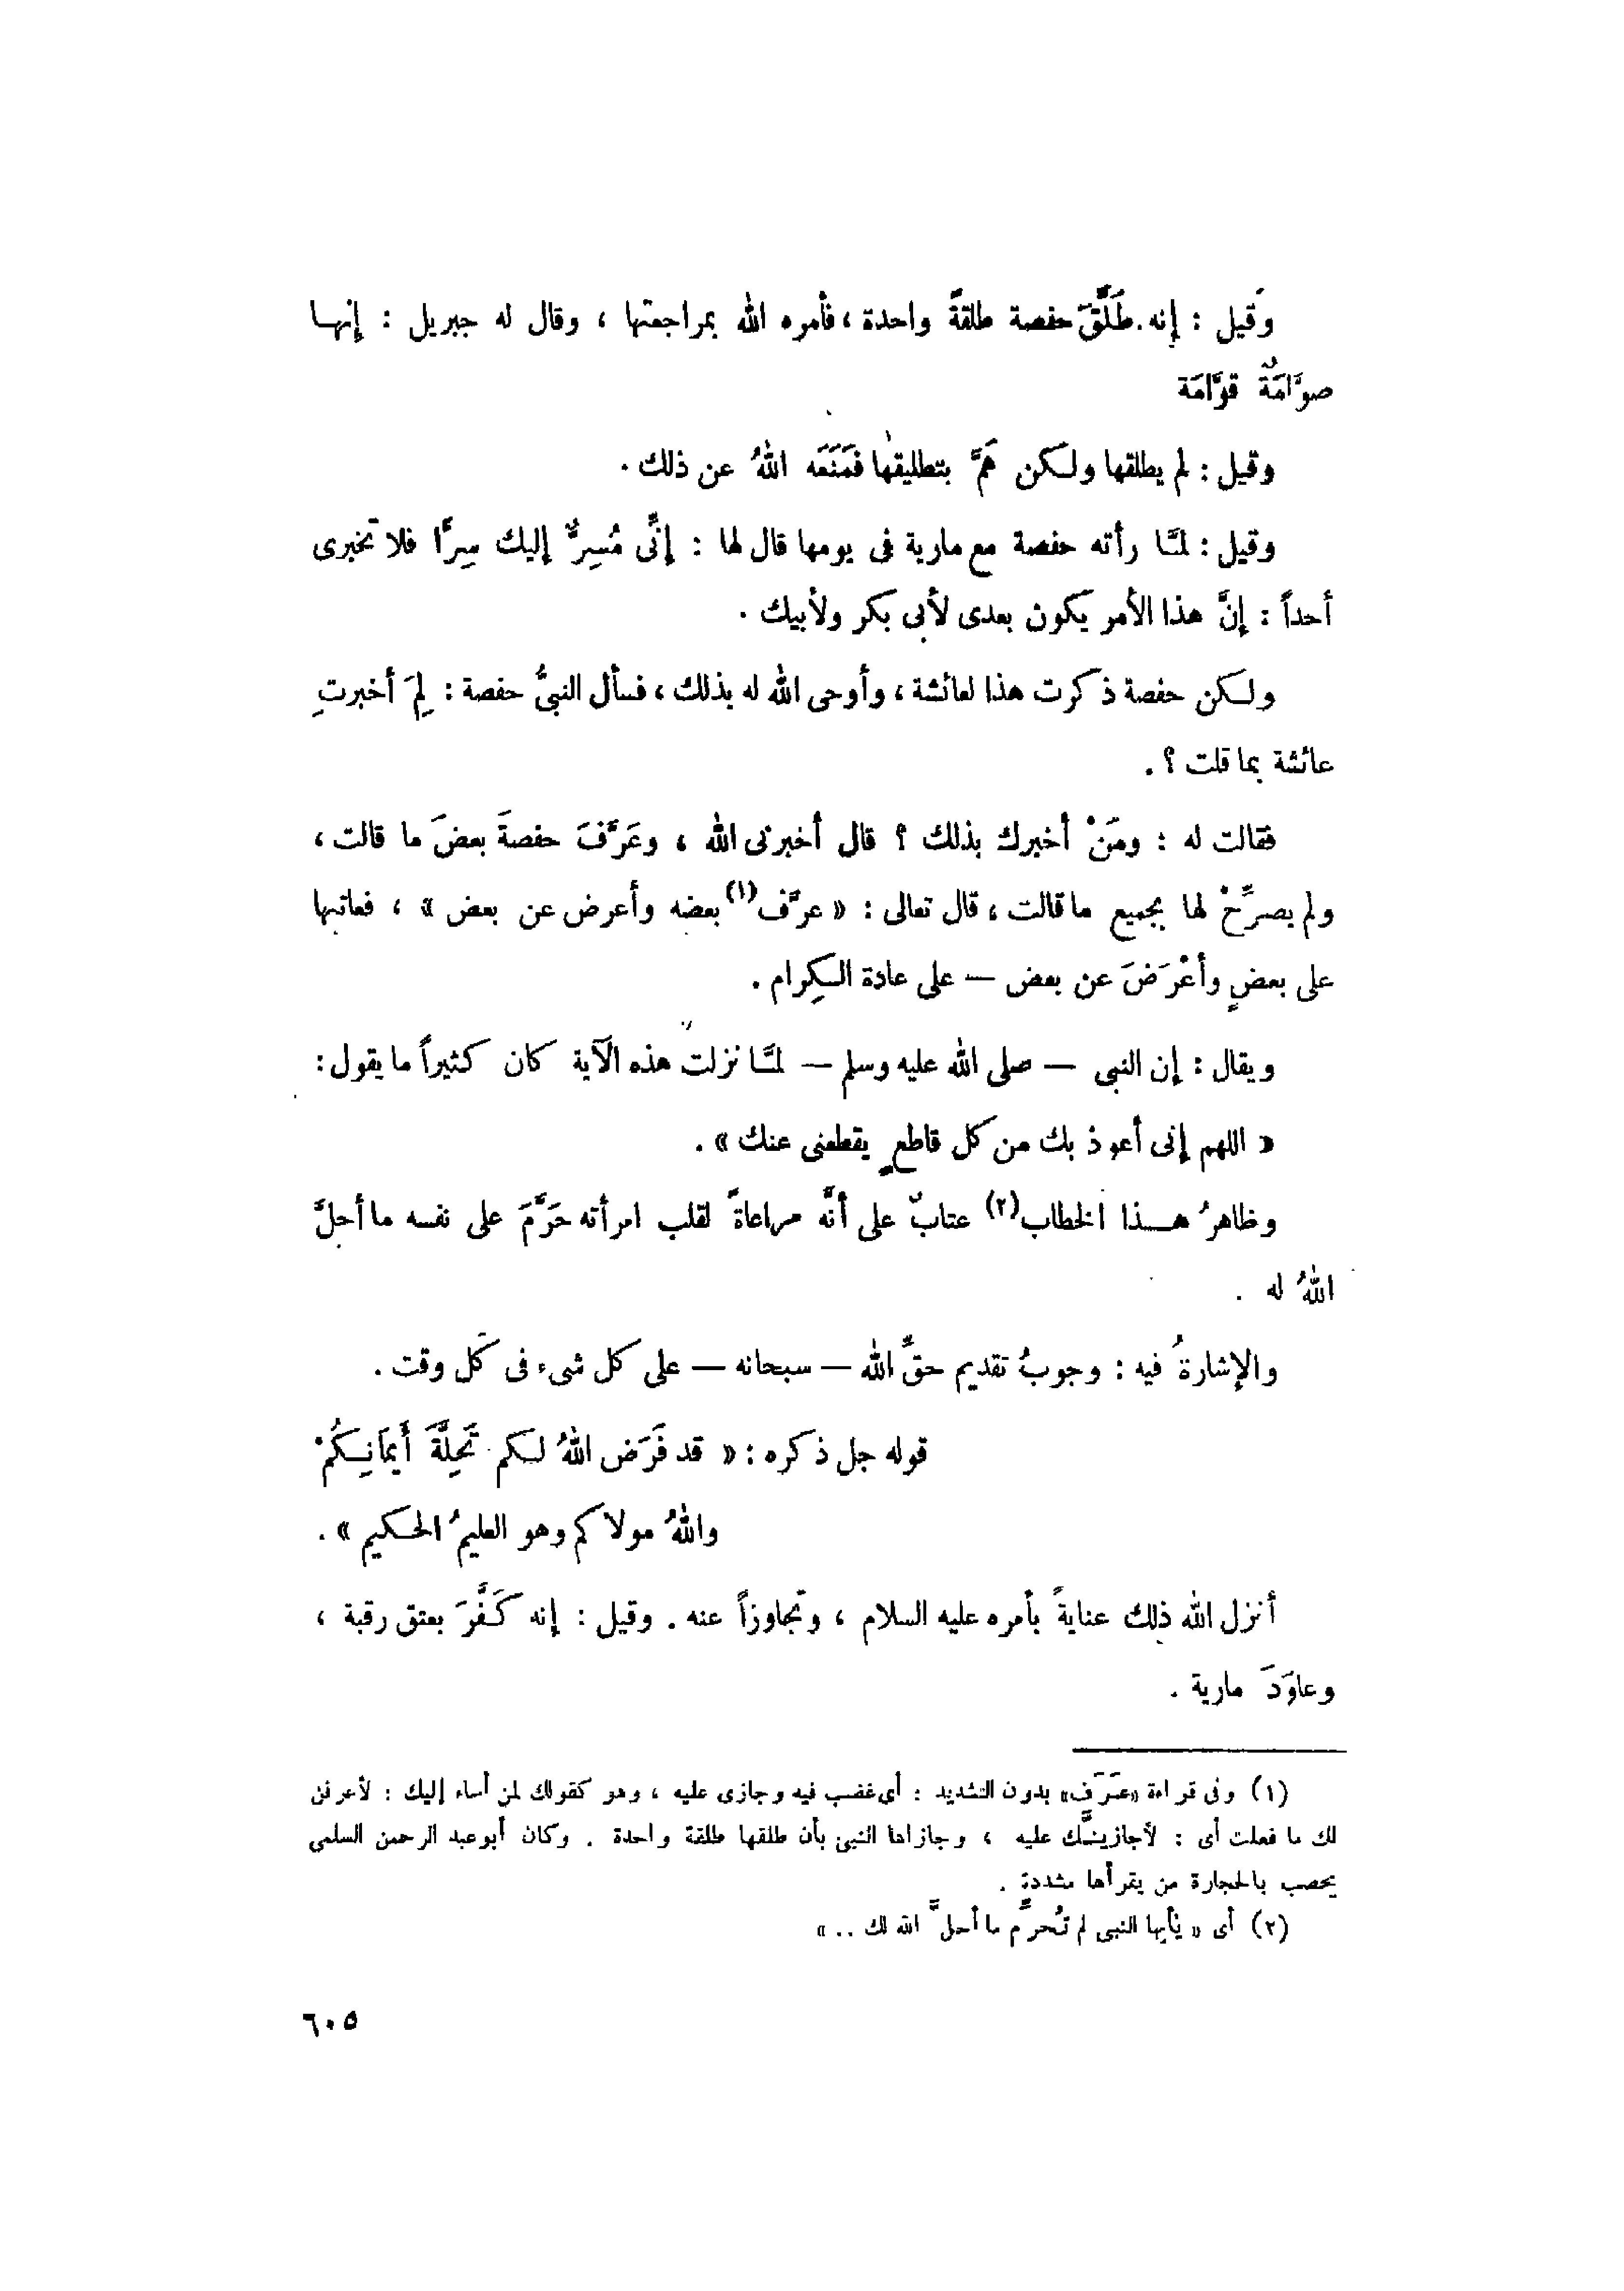 وقيل : إنه طَلَّقَ حفصة طلقةً واحدة ، فأمره الله بمراجعتها ، وقال له جبريل : إنهـا
صوَّامَةٌ قوَّامَة
وقيل : لم يطلقها ولـكن هَمَّ بتطليقها فَمَنَعَه اللهُ عن ذلك .
وقيل : لمَّـا رأته حفصة مع مارية فى يومها قال لها : إنِّى مُسِرٌّ إليك سِرَّا فلا تخبرى
أحداً : إنَّ هذا الأمر يكون بعدى لأبى بكر ولأبيك .
ولـكن حفصة ذكرت هذا لعائشة ، وأوحى الله له بذلك ، فسأل النبىُّ حفصة : لِمَ أخبرتِ
عائشة بما قلت ؟ .
فقالت له : ومَنْ أخبرك بذلك ؟ قال أخبرنى الله ، وعَرَّفَ حفصةَ بعضَ ما قالت ،
ولم يصرِّحْ لها بجميع ما قالت ، قال تعالى : « عرَّف(١) بعضه وأعرض عن بعض » ، فعاتبها
على بعضٍ وأعْرَضَ عن بعض — على عادة الـكِرام .
ويقال : إن النبى — صلى الله عليه وسلم — لمَّـا نزلت هذه الآية كان كثيراً ما يقول :
« اللهم إنى أعوذ بك من كل قاطعٍ يقطعنى عنك » .
وظاهرُ هـــذا الخطاب(٢) عتابٌ على أنَّه مراعاةً لقلب امرأته حَرَّمَ على نفسه ما أحلَّ
اللهُ له .
والإشارةُ فيه : وجوبُ تقديم حقِّ الله — سبحانه — على كل شىء فى كل وقت .
قوله جل ذكره : « قد فَرَض اللهُ لـكم تَحِلَّةَ أَيمَانِـكُمْ
واللهُ مولاكم وهو العليمُ الحـكيم » .
أنزل الله ذلك عنايةً بأمره عليه السلام ، وتجاوزاً عنه . وقيل : إنه كَـفَّرَ بعتق رقبة ،
وعاوَدَ مارية .
(١) وفى قراءة «عَرَف» بدون التشديد : أى غضب فيه وجازى عليه ، وهو كقولك لمن أساء إليك : لأعرفن
لك ما فعلت أى : لأجازينـَّك عليه ، وجازاها النبى بأن طلقها طلقة واحدة . وكان أبو عبد الرحمن السلمى
يحصب بالحجارة من يقرأها مشددة .
(٢) أى « يأيها النبى لم تُـحرِّم ما أحلَّ الله لك .. »
٦٠٥